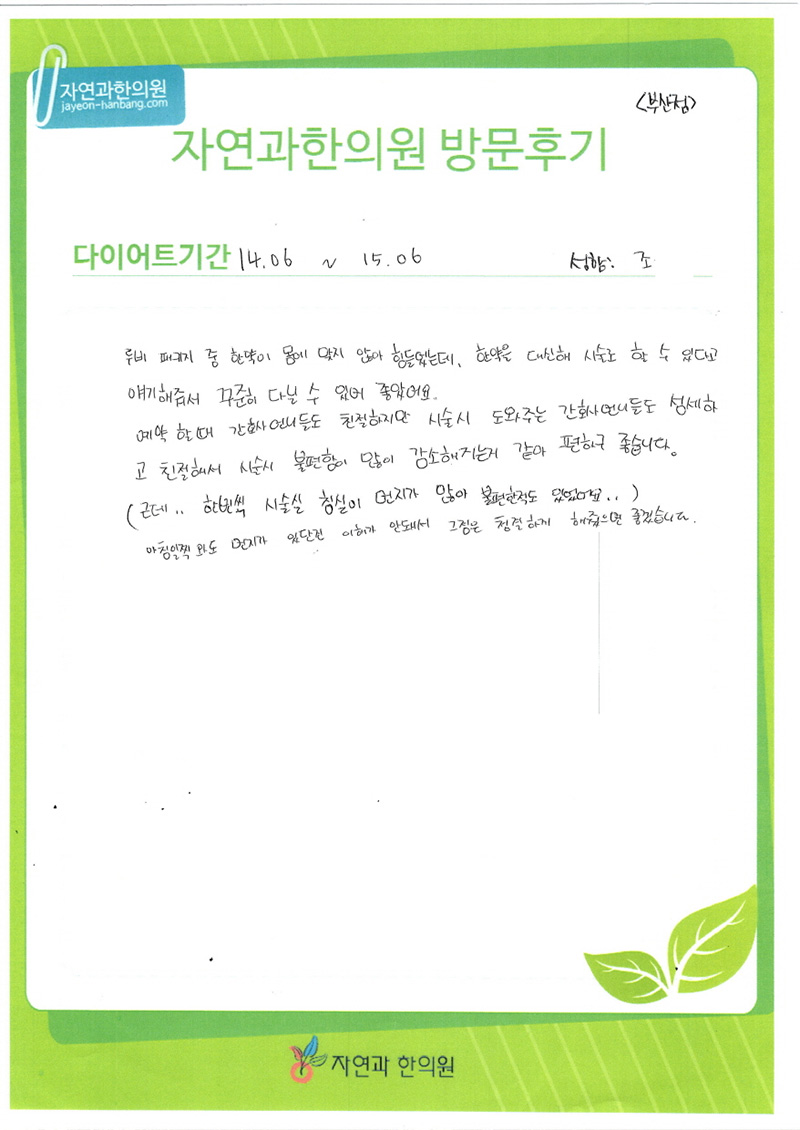 자연과한의원
jayeon-hanbang.com
<부산점>
자연과한의원 방문후기
다이어트기간 14.06 ~ 15.06 성함: 조
루비 패키지 중 한약이 몸에 맞지 않아 힘들었는데, 한약을 대신해 시술로 할 수 있다고
얘기해줘서 꾸준히 다닐 수 있어 좋았어요.
예약 할때 간호사언니들도 친절하지만 시술시 도와주는 간호사언니들도 섬세하
고 친절해서 시술시 불편함이 많이 감소해지는거 같아 편하구 좋습니다.
(근데.. 한번씩 시술실 침실이 먼지가 많아 불편한적도 있었어요..)
아침일찍 와도 먼지가 있단건 이해가 안돼서 그점은 청결하게 해줬으면 좋겠습니다.
자연과 한의원